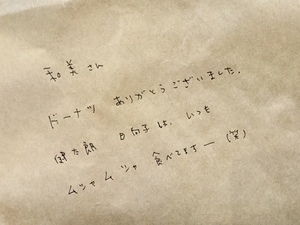 和美さん
ドーナツ ありがとうございました。
健太朗 日向子は、いつも
ムシャムシャ 食べてますー (笑)